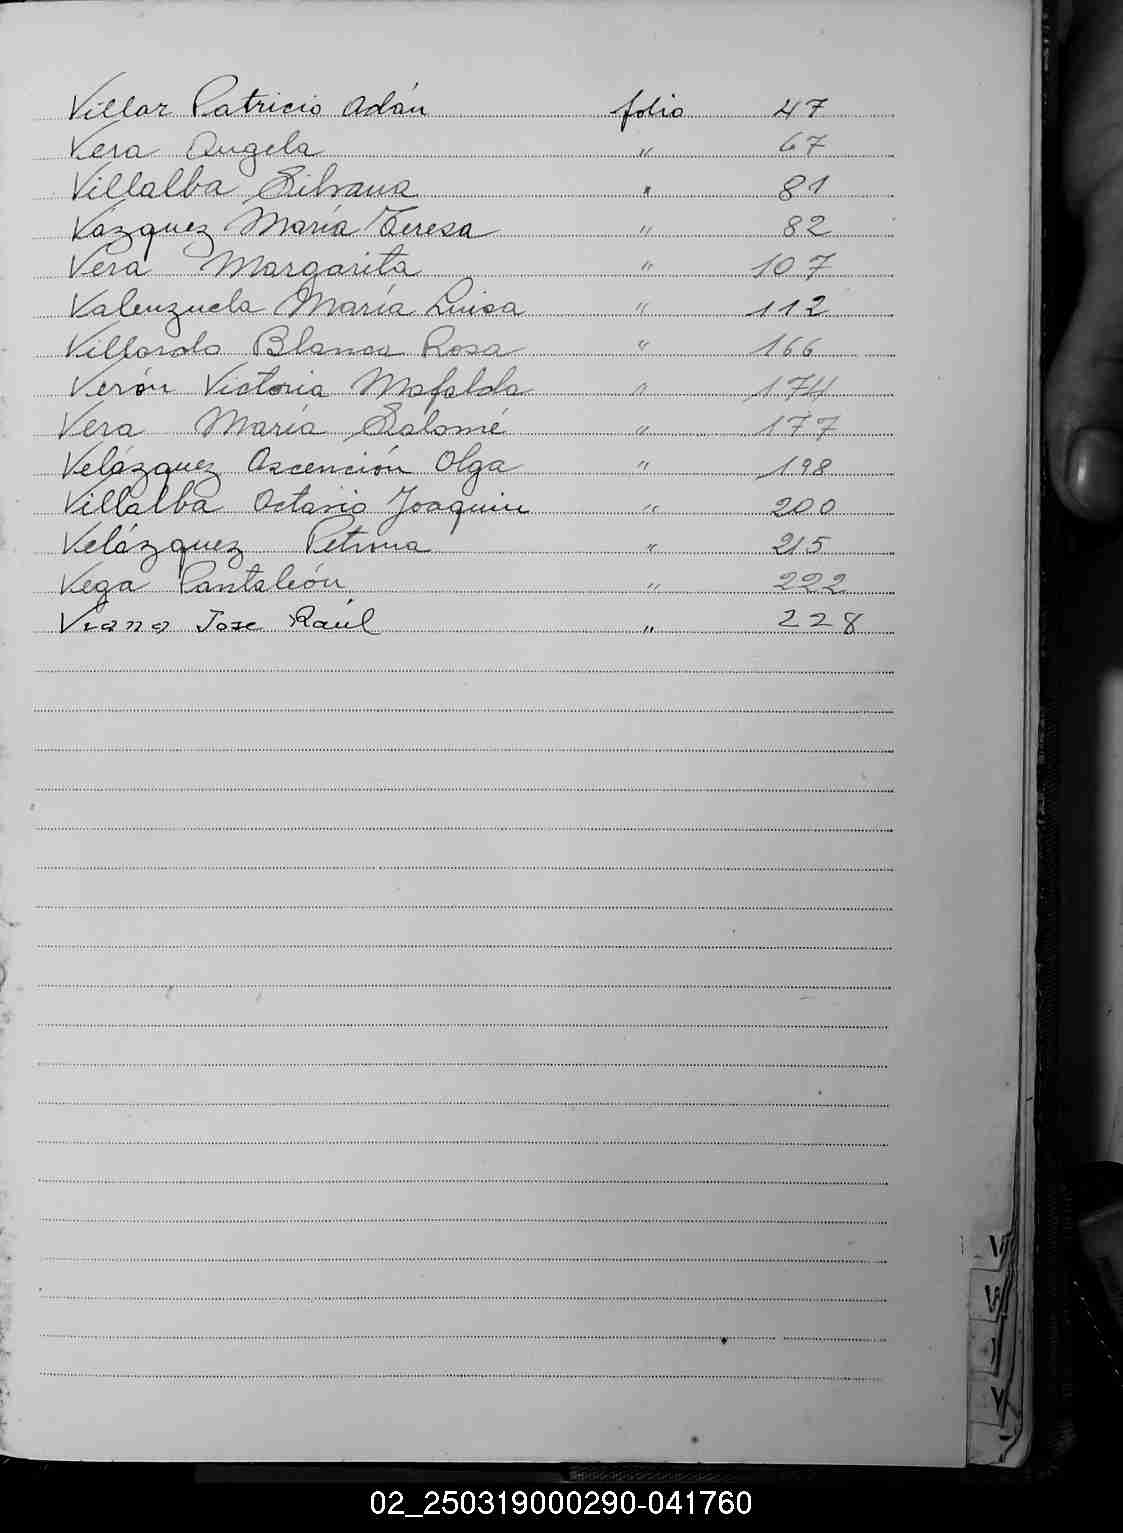 Villar Patricio Adán folio 47
Vera Angela " 67
Villalba Silvana " 81
Vázquez María Teresa " 82
Vera Margarita " 107
Valenzuela María Luisa " 112
Villordo Blanca Rosa " 166
Verón Victoria Mafalda " 174
Vera María Salomé " 177
Velázquez Ascención Olga " 198
Villalba Octavio Joaquin " 200
Velázquez Petrona " 215
Vega Pantaleón " 222
Viana Jose Raúl " 228
V
02_250319000290-041760